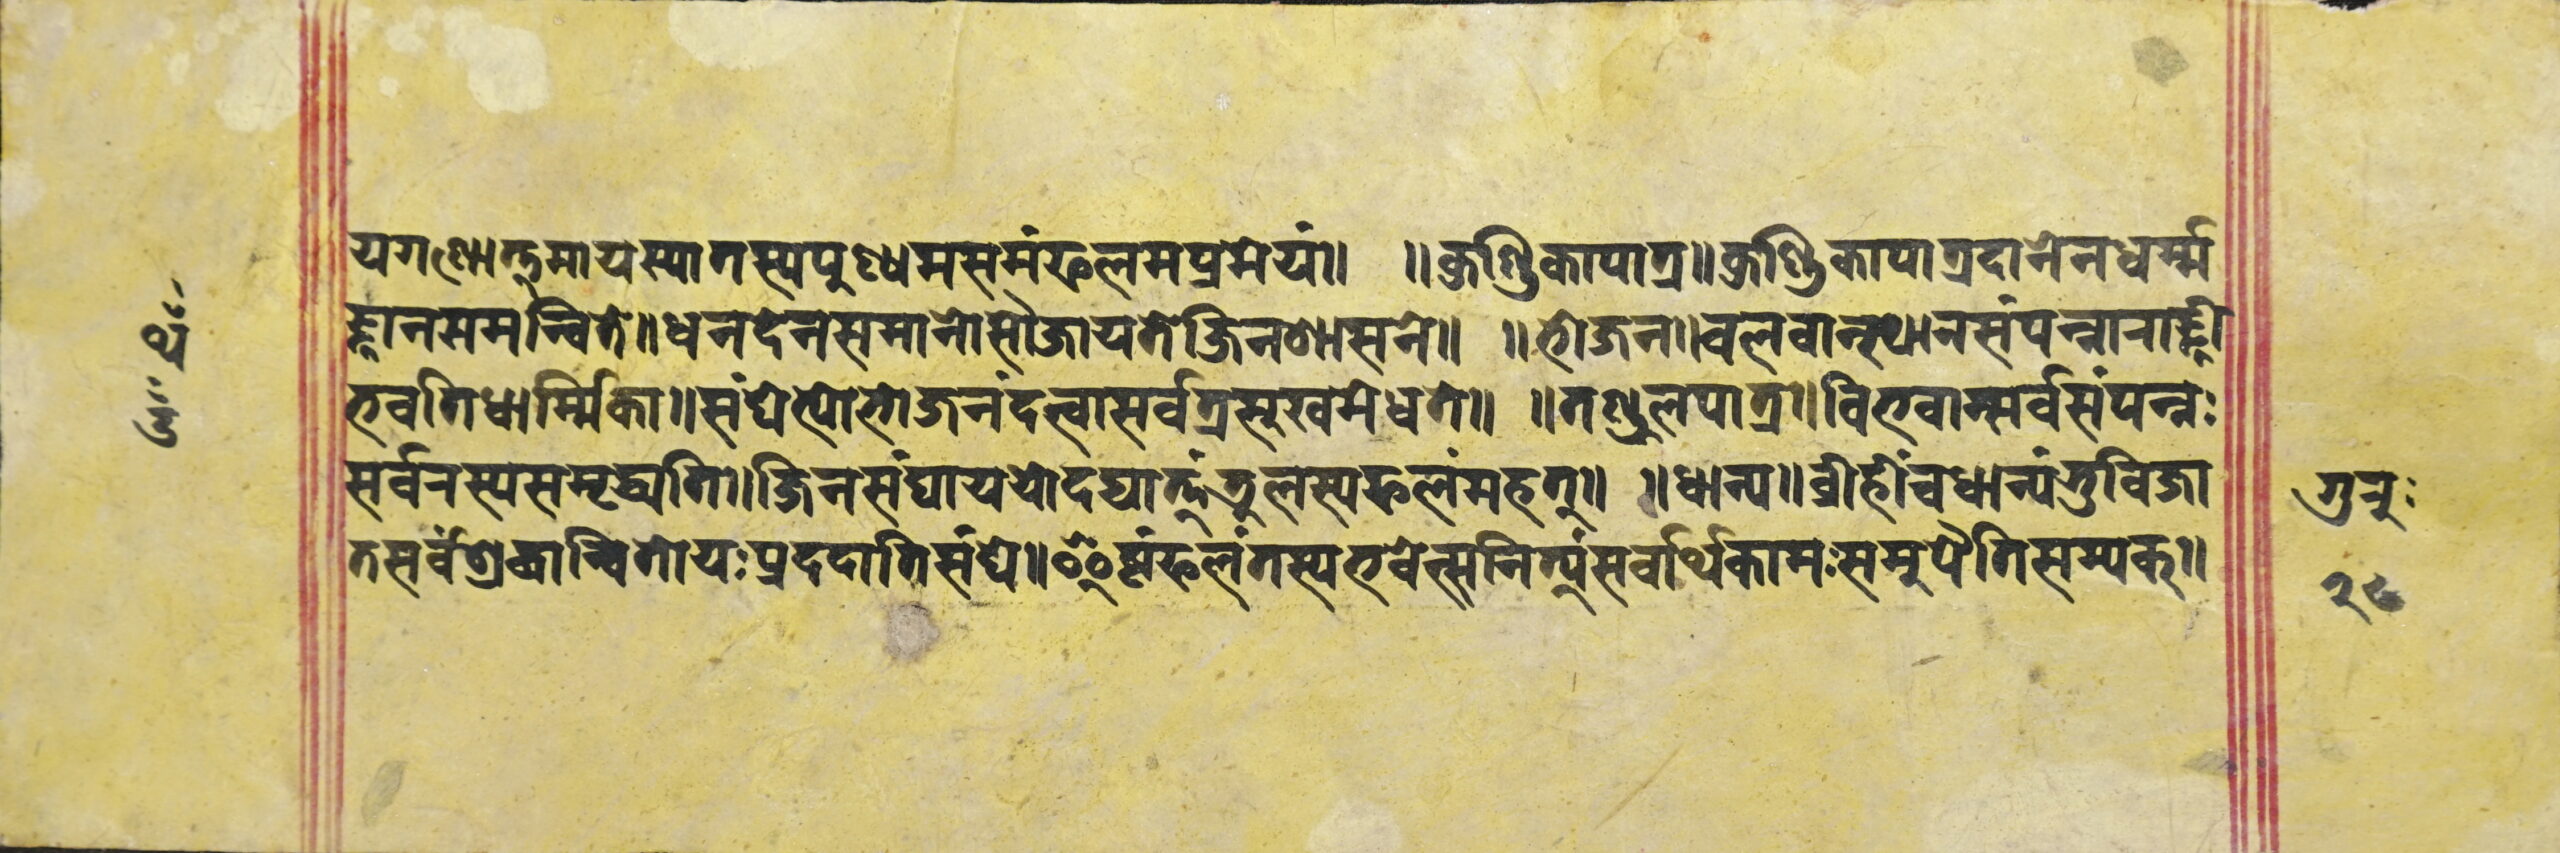 यगणोत्तमायस्यातस्यपुण्यमसमंफलमप्रमेयां॥ ॥कुण्डिकापात्र॥कुण्डिकापात्रदानेनधर्म्म
ज्ञानसमन्विते॥धनदेनसमानोसौजायतेजिनशासने॥ ॥भोजन॥बलवान्स्थानसंपन्नाराज्ञी
भवतिधार्म्मिका॥संघेत्योभोजनंदत्वासर्वत्रसुखमेधते॥ ॥तण्डुलपात्र॥विभवान्सर्वसंपन्नः
सर्वनस्यसमृद्ध्यति॥जिनसंघाययोदद्यात्तंतुलस्यफलंमहत्॥ ॥धान्य॥व्रीहींचधान्यंतुविजा
तसर्वंश्रद्धान्वितोयःप्रददातिसंघे॥ फलंतस्यभवेत्सनित्यंसर्वार्थिकामःसमुपैतिसम्यक्॥
गुरुः